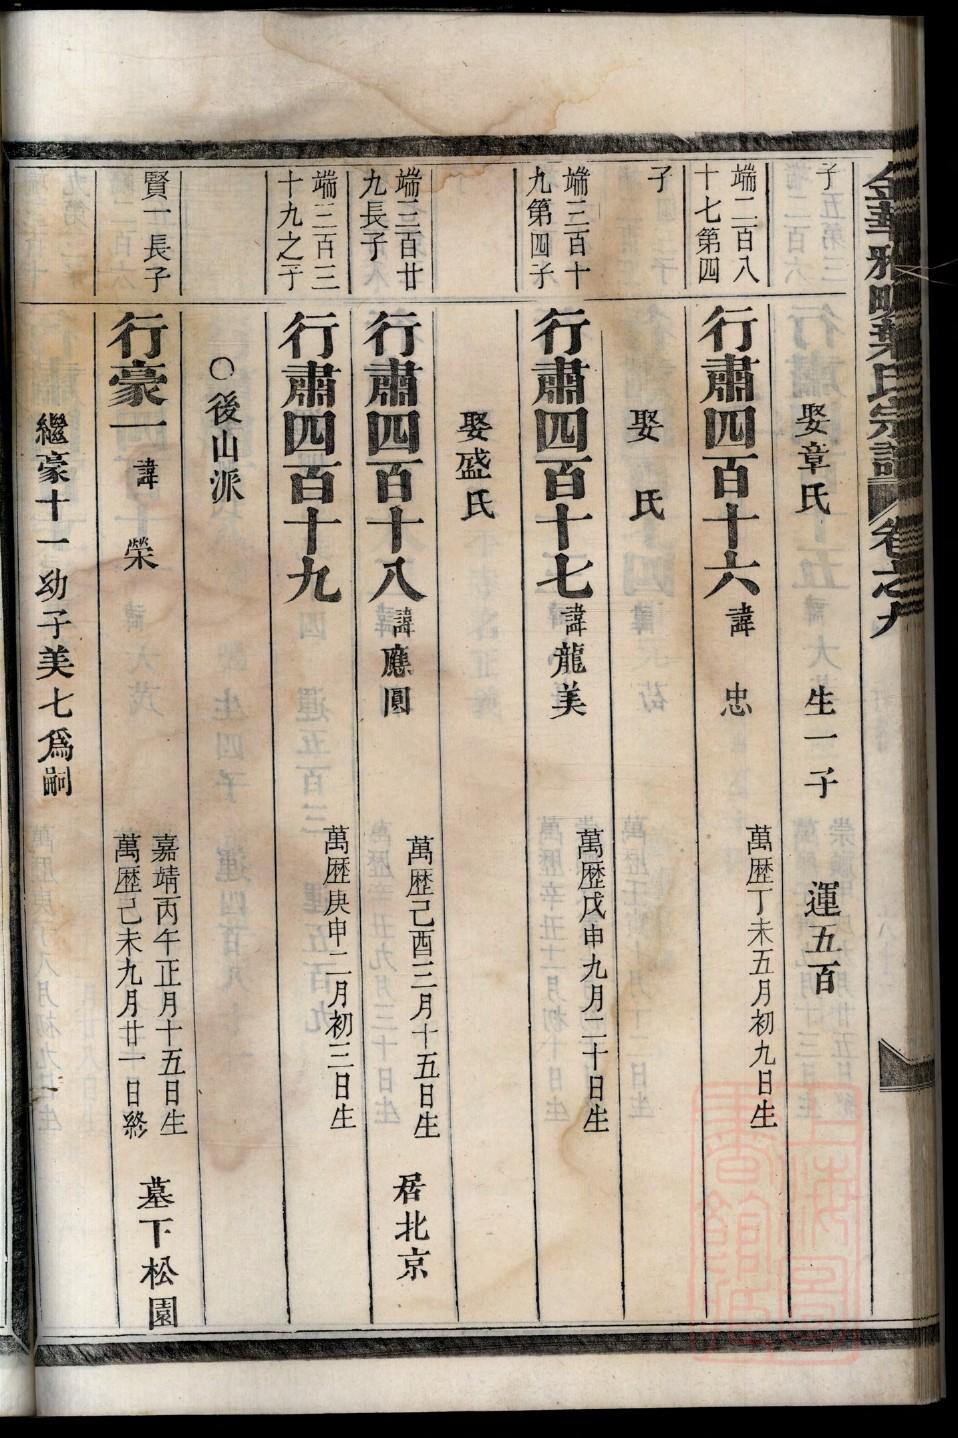 金華雅畈葉氏宗譜 卷之九
子
娶章氏 生一子 運五百
端二百八
十七第四
行肅四百十六 諱 忠 萬歷丁未五月初九日生
子
娶 氏
端三百十
九第四子
行肅四百十七 諱龍美 萬歷戊申九月二十日生
娶盛氏
端三百廿
九長子
行肅四百十八 諱應圓 萬歷己酉三月十五日生 居北京
端三百三
十九之子
行肅四百十九 萬歷庚申二月初三日生
○後山派
賢一長子
行豪一 諱 榮 嘉靖丙午正月十五日生
萬歷己未九月廿一日終 墓下松園
繼豪十一幼子美七爲嗣